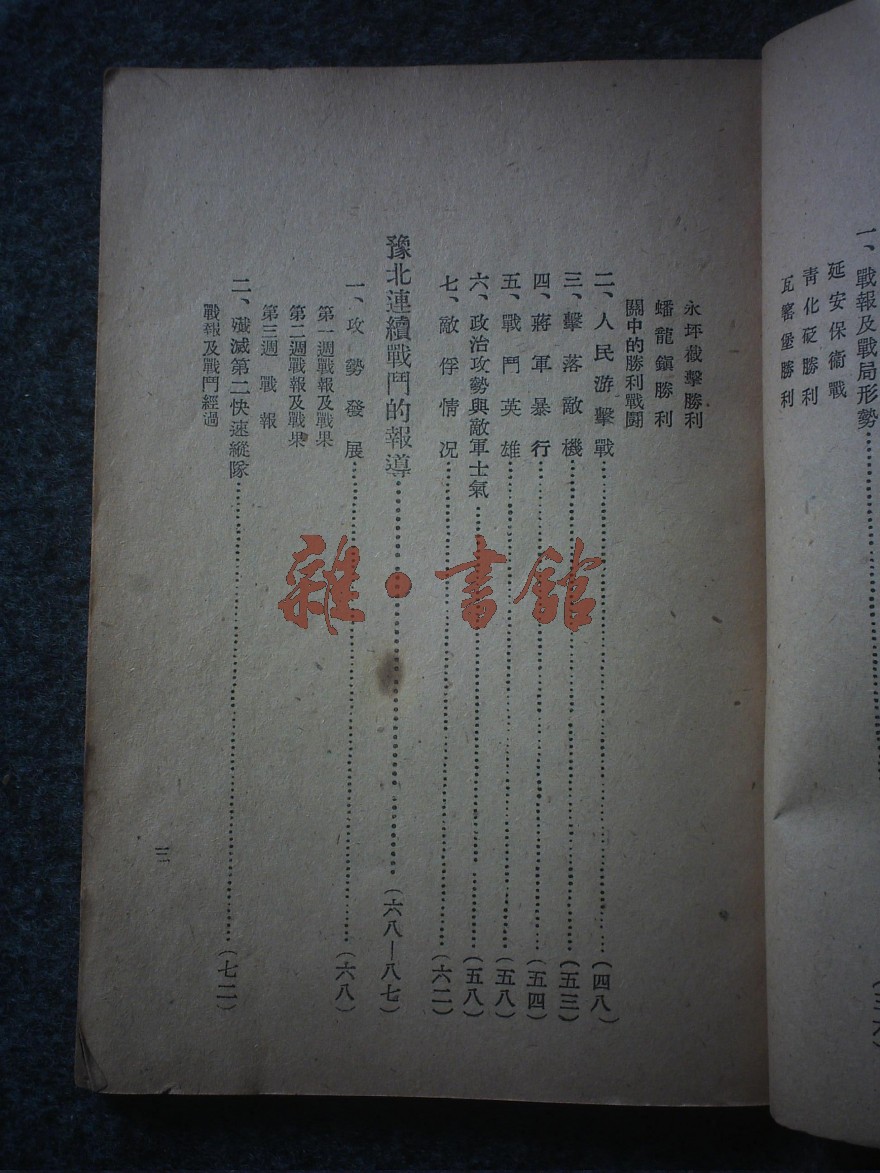 一、戰報及戰局形勢
延安保衛戰
青化砭勝利
瓦窰堡勝利
永坪截擊勝利
蟠龍鎮勝利
關中的勝利戰鬪
二、人民游擊戰……(四八)
三、擊落敵機……(五三)
四、蔣軍暴行……(五四)
五、戰鬥英雄……(五八)
六、政治攻勢與敵軍士氣……(五八)
七、敵俘情况……(六二)
豫北連續戰鬥的報導……(六八—八七)
一、攻勢發展……(六八)
第一週戰報及戰果
第二週戰報及戰果
第三週戰報
二、殲滅第二快速縱隊……(七二)
戰報及戰鬥經過
三
雜·書館